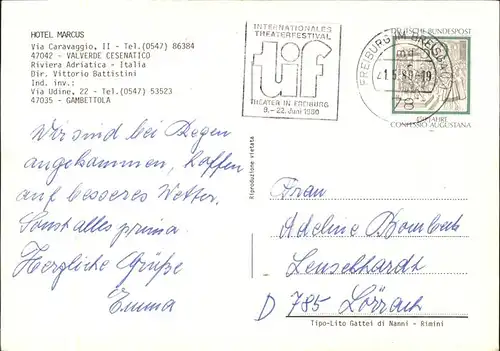 HOTEL MARCUS
Via Caravaggio, II - Tel.(0547) 86384
47042 - VALVERDE CESENATICO
Riviera Adriatica - Italia
Dir. Vittorio Battistini
Ind. inv.:
Via Udine, 22 - Tel.(0547) 53523
47035 - GAMBETTOLA
INTERNATIONALES
THEATERFESTIVAL
tif
THEATER IN FREIBURG
9.-22. Juni 1980
FREIBURG IM BREISGAU
78
DEUTSCHE BUNDESPOST
450 JAHRE
CONFESSIO AUGUSTANA
Wir sind bei Regen
angekommen, hoffen
auf besseres Wetter.
Sonst alles prima.
Herzliche Grüße
Emma
Riproduzione vietata
Frau
Adeline
D 785 Lörrach
Tipo-Lito Gattei di Nanni - Rimini